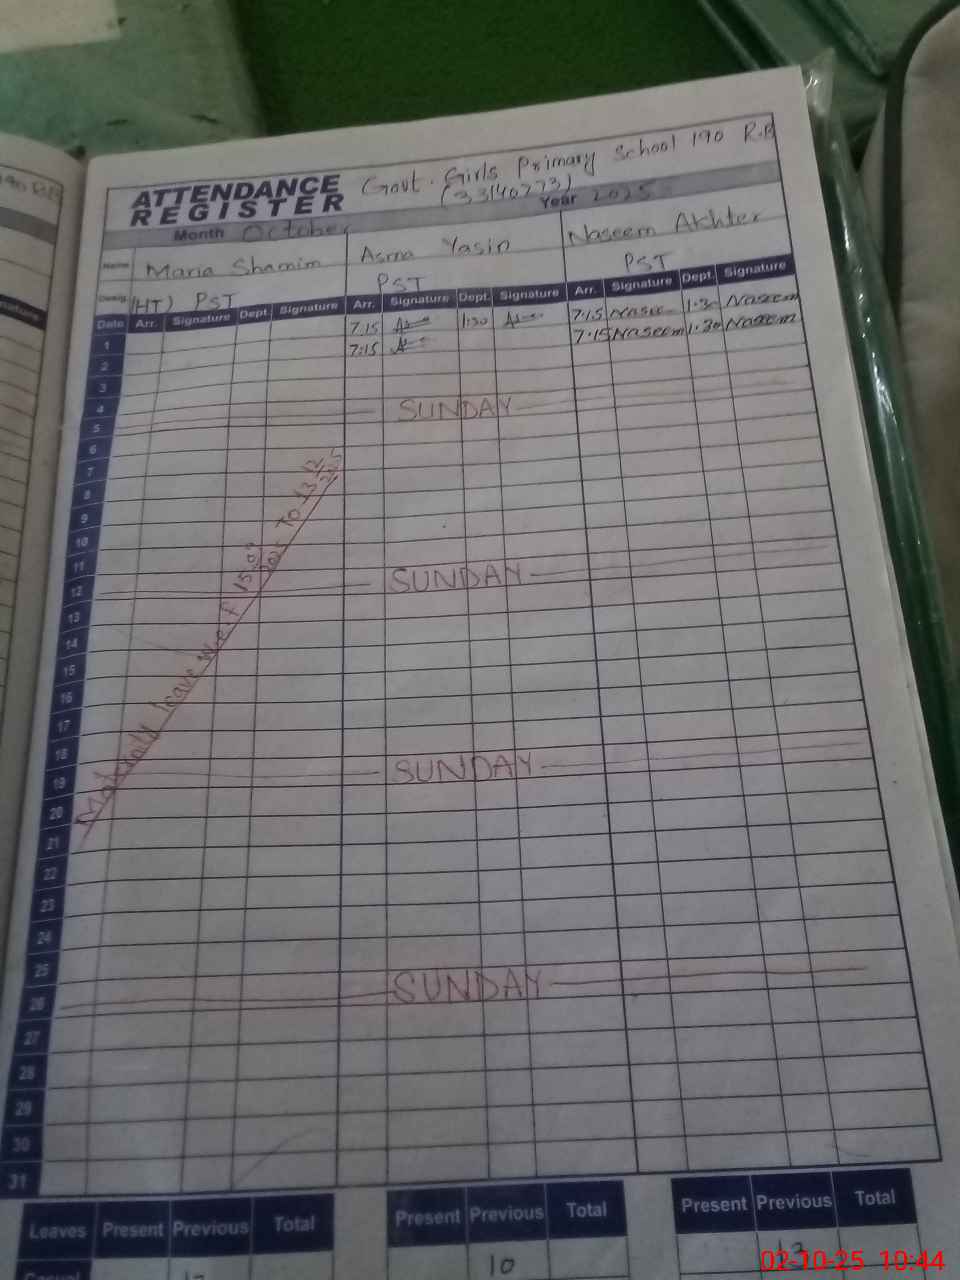 190 R.B
ATTENDANCE REGISTER
Govt. Girls Primary School 190 R.B
(33140773)
Month October Year 2025
Name Maria Shamim Asma Yasin Naseem Akhter
Desig. (HT) PST PST PST
Date Arr. Signature Dept. Signature Arr. Signature Dept. Signature Arr. Signature Dept. Signature
1 7:15 1:30 7:15 Naseem 1:30 Naseem
2 7:15 7:15 Naseem 1:30 Naseem
3
4
5 SUNDAY
6
7
8
9
10
11
12 SUNDAY
13
14
15
16
17
18
19 SUNDAY
20
21
22
23
24
25
26 SUNDAY
27
28
29
30
31
Maternity leave w.e.f 15-09-2025 To 13-12-2025
Leaves Present Previous Total Present Previous Total Present Previous Total
Casual 10 13
02-10-25 10:44